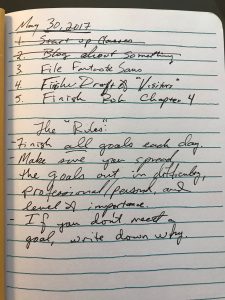 May 30, 2017
1. Start up classes
2. Blog about something
3. File Fantastic Sams
4. Finish Draft of "Visitors"
5. Finish Bob Chapter 4
The "Rules":
- Finish all goals each day.
- Make sure you spread
the goals out in difficulty,
professional/personal, and
level of importance.
- If you don't meet a
goal, write down why.